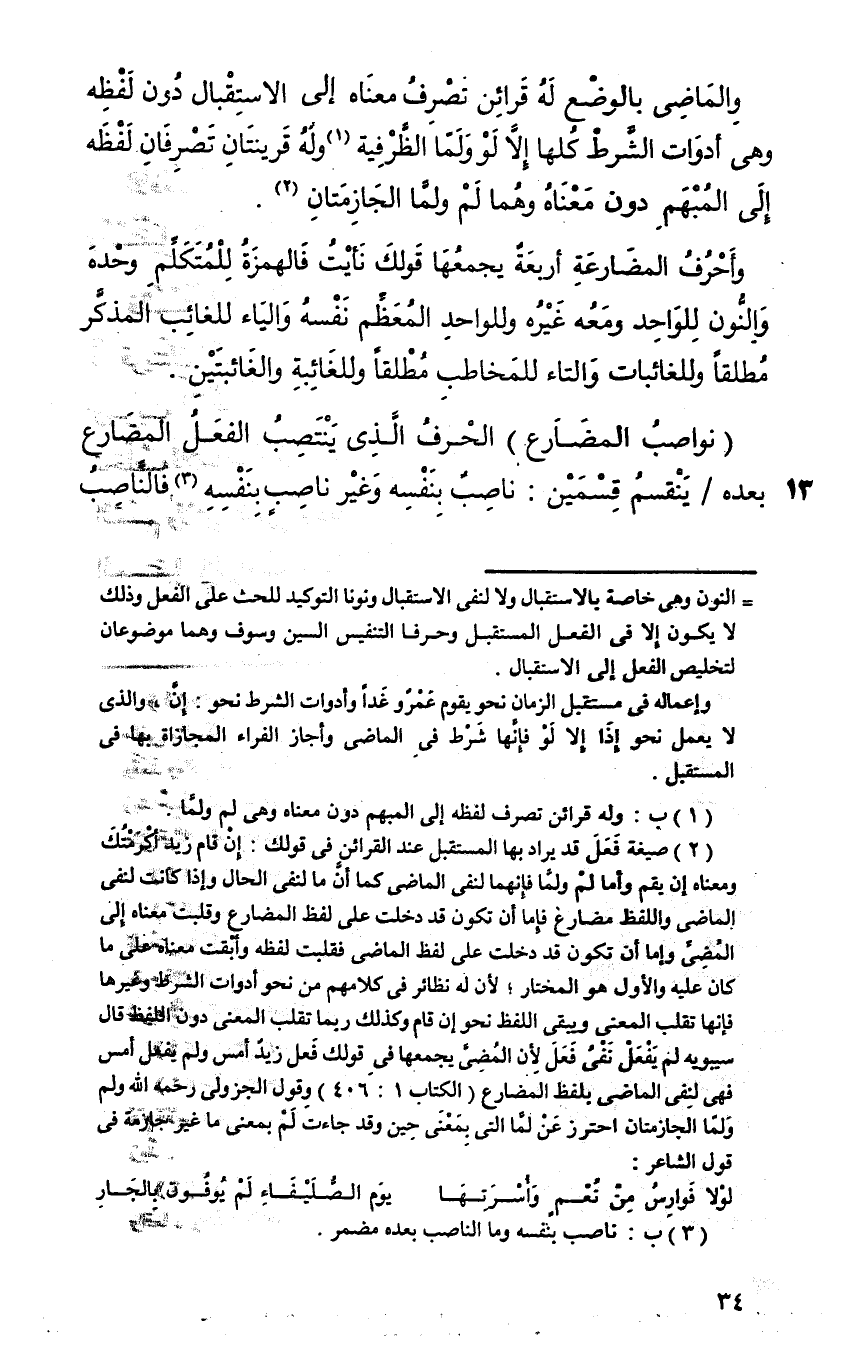 والمَاضِى بالوضْع لَهُ قَرائِن تَصْرِفُ معنَاه إلى الاستِقْبال دُون لَفْظِه
وهى أدوَات الشَّرطْ كُلها إلَّا لَوْ وَلَمَّا الظَّرْفية (١) ولَهُ قَرينتَانِ تَصْرِفَانِ لَفْظَه
إلَى المُبْهَم دون مَعْنَاهُ وهُما لَمْ ولمَّا الجَازِمَتانِ (٢) .
وأَحْرُفُ المضَارعَةِ أربعَةٌ يجمعُهَا قَولكَ نَأيْتُ فَالهمزَةُ لِلْمُتَكَلِّم وحْدهَ
وَالنُّون لِلوَاحِد ومَعُه غَيْرُه وللواحدِ المُعَظِّم نَفْسهُ وَاليَاء للغائِب المذكَّر
مُطلقاً وللغائبات وَالتاء للمَخاطب مُطْلقاً وللغَائبةِ والغَائبتَيْن .
( نواصبُ المضَارع ) الحْرفُ الَّذِى يَنْتَصِبُ الفعَلُ المضَارع
١٣ بعده / يَنْقسمُ قِسْمَيْن : ناصِبٌ بِنَفْسِه وَغَيْر ناصِبٍ بِنَفْسِهِ (٣) فَالنَّاصِبُ
= النون وهى خاصة بالاستقبال ولا لنفى الاستقبال ونونا التوكيد للحث على الفعل وذلك
لا يكون إلا فى الفعل المستقبل وحرفا التنفيس السين وسوف وهما موضوعان
لتخليص الفعل إلى الاستقبال .
وإعماله فى مستقبل الزمان نحو يقوم عَمْرُو غَداً وأدوات الشرط نحو : إنَّ ، والذى
لا يعمل نحو إذَا إلا لَوْ فإنَّها شَرْط فى الماضى وأجاز الفراء المجازاة بها فى
المستقبل .
( ١ ) ب : وله قرائن تصرف لفظه إلى المبهم دون معناه وهى لم ولمَّا .
( ٢ ) صيغة فَعَلَ قد يراد بها المستقبل عند القرائن فى قولك : إنْ قام زيد أكْرَمْتُكَ
ومعناه إن يقم وأما لمْ ولمَّا فإنهما لنفى الماضى كما أنَّ ما لنفى الحال وإذا كانت لنفى
الماضى واللفظ مضارغ فإما أن تكون قد دخلت على لفظ المضارع وقلبت معناه إلى
المُضِىِّ وإما أن تكون قد دخلت على لفظ الماضى فقلبت لفظه وأبْقت معناه على ما
كان عليه والأول هو المختار ؛ لأن له نظائر فى كلامهم من نحو أدوات الشرط وغيرها
فإنها تقلب المعنى ويبقى اللفظ نحو إن قام وكذلك ربما تقلب المعنى دون اللفظ قال
سيبويه لم يَفْعَلْ نَفْىُ فَعَلَ لأن المُضِىَّ يجمعها فى قولك فَعل زيدٌ أمس ولم يفعل أمس
فهى لنفى الماضى بلفظ المضارع ( الكتاب ١ : ٤٠٦ ) وقول الجزولى رحمه الله ولم
وَلمَّا الجازمتان احترز عَنْ لمَّا التى بِمَعْنَى حِين وقد جاءت لَمْ بمعنى ما غير جازمة فى
قول الشاعر :
لوْلا فَوارِسُ مِنْ نُعْمٍ وَأُسْرَتِهَا يومَ الصُّلَيْفَاءِ لَمْ يُوفُونَ بِالجَارِ
( ٣ ) ب : ناصب بنفسه وما الناصب بعده مضمر .
٣٤